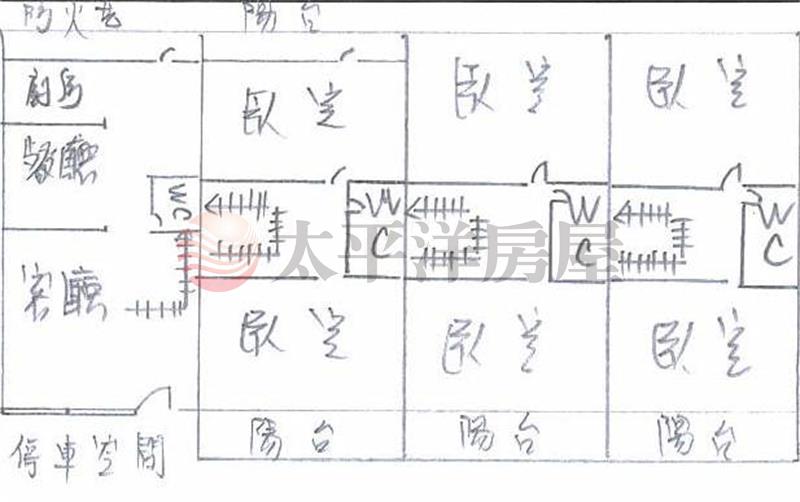 防火巷 陽台
廚房
臥室 臥室 臥室 臥室
餐廳
WC
WC WC WC
太平洋房屋
客廳
臥室 臥室 臥室
陽台 陽台 陽台
停車空間